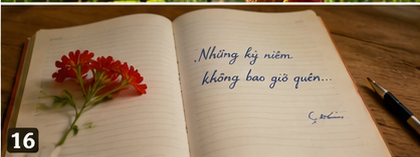 Những kỷ niêm
không bao giờ quên...
16